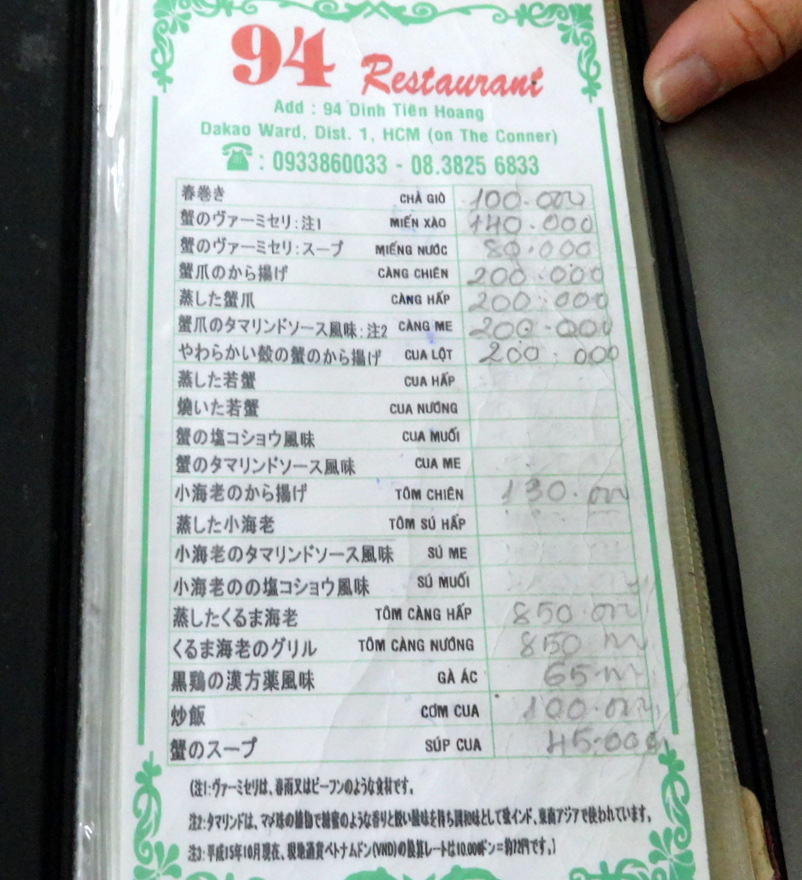 94 Restaurant
Add : 94 Dinh Tiên Hoang
Dakao Ward, Dist. 1, HCM (on The Conner)
☎ : 0933860033 - 08.3825 6833
春巻き CHẢ GIÒ 100.000
蟹のヴァーミセリ:注1 MIẾN XÀO 140.000
蟹のヴァーミセリ:スープ MIẾNG NƯỚC 80.000
蟹爪のから揚げ CÀNG CHIÊN 200.000
蒸した蟹爪 CÀNG HẤP 200.000
蟹爪のタマリンドソース風味:注2 CÀNG ME 200.000
やわらかい殻の蟹のから揚げ CUA LỘT 200.000
蒸した若蟹 CUA HẤP
燒いた若蟹 CUA NƯỚNG
蟹の塩コショウ風味 CUA MUỐI
蟹のタマリンドソース風味 CUA ME
小海老のから揚げ TÔM CHIÊN 130.000
蒸した小海老 TÔM SÚ HẤP
小海老のタマリンドソース風味 SÚ ME
小海老のの塩コショウ風味 SÚ MUỐI
蒸したくるま海老 TÔM CÀNG HẤP 850.000
くるま海老のグリル TÔM CÀNG NƯỚNG 850.000
黒鶏の漢方薬風味 GÀ ÁC 65.000
炒飯 CƠM CUA 100.000
蟹のスープ SÚP CUA 45.000
(注1:ヴァーミセリは、春雨又はビーフンのような食材です。
注2:タマリンドは、マメ科の植物で蜂蜜のような香りと鋭い酸味を持ち調味味として歌インド、東南アジアで使われています。
注3:平成15年10月現在、現地通貨ベトナムドン(VND)の換算レートは10.000ドン=約72円です。)